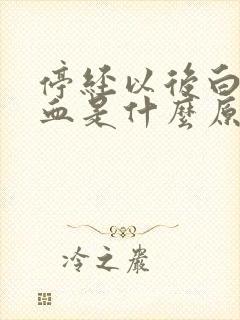 停經以後白
血是什麼原
冷之嚴